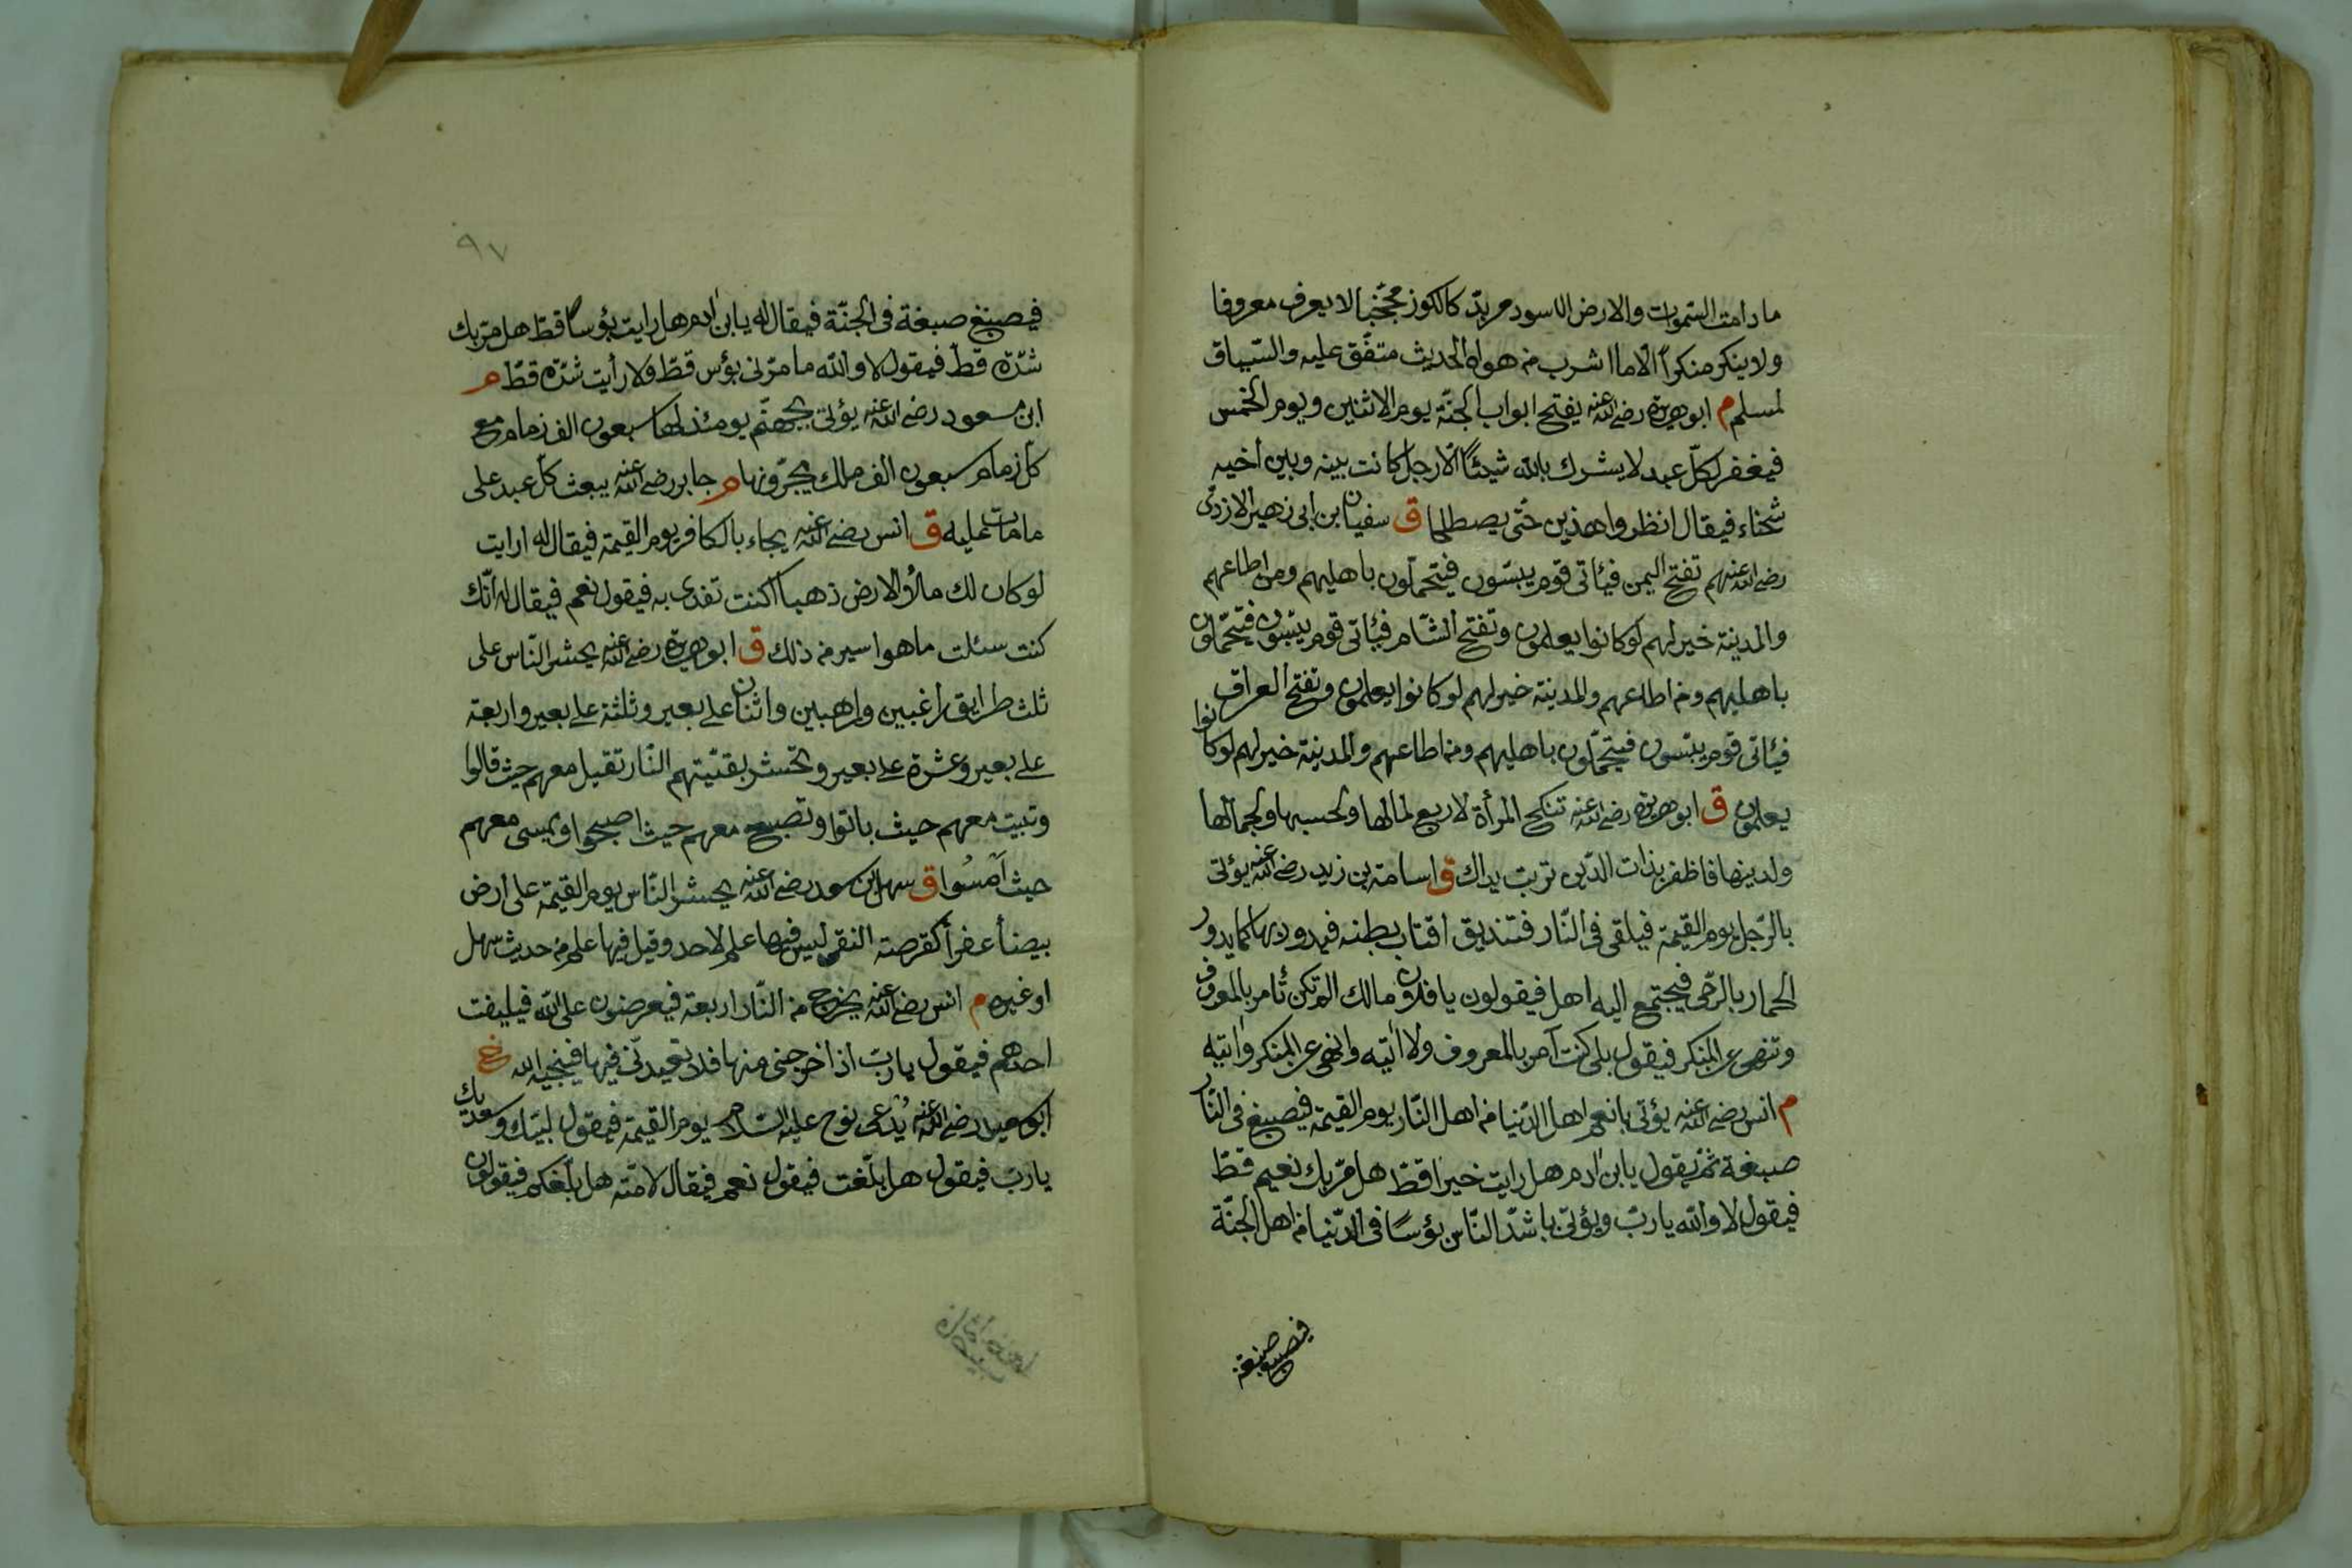 ما دامت السموات والارض الاسود مربدّ كالكوز مجّخيا لا يعرف معروفا
ولا ينكر منكراً الّا ما اشرب من هواه الحديث متفق عليه والسّياق
لمسلم م ابوهريرة رضى الله عنه يفتح ابواب الجنّة يوم الاثنين ويوم الخمس
فيغفر لكلّ عبد لا يشرك بالله شيئًا الّا رجل كانت بينه وبين اخيه
شحناء فيقال انظروا هذين حتى يصطلحا ق سفيان بن ابى زهير الازدى
رضى الله عنهم تفتح اليمن فيأتى قوم يبسّون فيتحمّلون باهليهم ومن اطاعهم
والمدينة خير لهم لوكانوا يعلمون وتفتح الشّام فيأتى قوم يبسّون فيتحمّلون
باهليهم ومن اطاعهم والمدينة خير لهم لوكانوا يعلمون وتفتح العراق
فيأتى قوم يبسّون فيتحمّلون باهليهم ومن اطاعهم والمدينة خير لهم لوكانوا
يعلمون ق ابوهريرة رضى الله عنه تنكح المرأة لاربع لمالها ولحسبها ولجمالها
ولدينها فاظفر بذات الدّين تربت يداك ق اسامة بن زيد رضى الله عنه يؤتى
بالرّجل يوم القيمة فيلقى فى النّار فتندبق اقتاب بطنه فيدور بها كما يدور
الحمار بالرّحى فيجتمع اليه اهل فيقولون يا فلان مالك الم تكن تأمر بالمعروف
وتنهى عن المنكر فيقول بلى كنت آمر بالمعروف ولا اتيه وانهى عن المنكر واتيه
م انس رضى الله عنه يؤتى بانعم اهل الدّنيا من اهل النّار يوم القيمة فيصبغ فى النّار
صبغة ثمّ يقول يابن ادم هل رايت خيرا قطّ هل مرّ بك نعيم قطّ
فيقول لا والله ياربّ ويؤتى باشدّ النّاس بؤسًا فى الدّنيا من اهل الجنّة
فيصبغ صبغة
٩٧
فيصبغ صبغة فى الجنّة فيقال له يابن ادم هل رايت بؤسًا قطّ هل مرّ بك
شدّة قطّ فيقول لا والله ما مرّنى بؤس قطّ ولا رأيت شدّة قطّ م
ابن مسعود رضى الله عنه يؤتى بجهنّم يومئذ لها سبعون الف زمام مع
كلّ زمام سبعون الف ملك يجرّونها م جابر رضى الله عنه يبعث كلّ عبد على
ما مات عليه ق انس رضى الله عنه يجاء بالكافر يوم القيمة فيقال له ارايت
لو كان لك ملأ الارض ذهبا اكنت تفدى به فيقول نعم فيقال له انّك
كنت سئلت ما هوا سير من ذلك ق ابوهريرة رضى الله عنه يحشر النّاس على
ثلث طرايق راغبين وراهبين واثنان على بعير وثلثة على بعير واربعة
على بعير وعشرة على بعير وتحشر بقيّتهم النّار تقيل معهم حيث قالوا
وتبيت معهم حيث باتوا وتصبح معهم حيث اصبحوا ويمسى معهم
حيث اَمْسُوا ق سهل بن سعد رضى الله عنه يحشر النّاس يوم القيمة على ارض
بيضأ عفرأ كقرصة النقى ليس فيها علم لاحد وقيل فيها علم من حديث سهل
او غيره م انس رضى الله عنه يخرج من النّار اربعة فيعرضون على الله فيليفت
احدهم فيقول ياربّ اذا خرجنى منها فلا تعيدنّى فيها فينجيه الله خ
ابو رضى الله عنه يُدعى نوح عليه السّلام يوم القيمة فيقول لبّيك وسعديك
ياربّ فيقول هل بلّغت فيقول نعم فيقال لامّته هل بلّغكم فيقولون